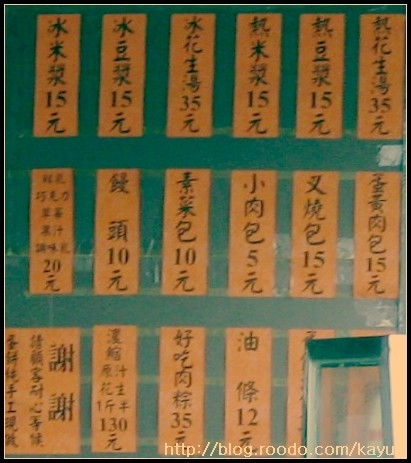 熱花生湯35元
熱豆漿15元
熱米漿15元
冰花生湯35元
冰豆漿15元
冰米漿15元
蛋黃肉包15元
叉燒包15元
小肉包5元
素菜包10元
饅頭10元
鮮乳
巧克力
草莓
果汁
調味乳
20元
油條12元
好吃肉粽35元
濃縮
原汁
花生
1斤半
130元
謝謝
請顧客耐心等候
蛋餅純手工現做
http://blog.roodo.com/kayu